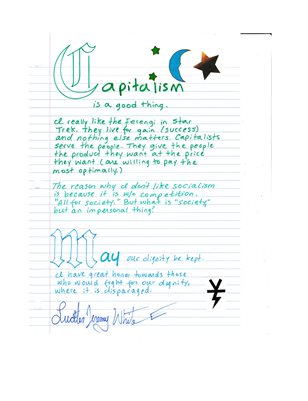 Capitalism
is a good thing.
I really like the Ferengi in Star
Trek. They live for gain (success)
and nothing else matters. Capitalists
serve the people. They give the people
the product they want at the price
they want (are willing to pay the
most optimally.)
The reason why I don't like socialism
is because it is w/o competition.
"All for society." But what is "society"
but an impersonal thing!
May our dignity be kept.
I have great honor towards those
who would fight for our dignity,
where it is disparaged.
Jeremy White